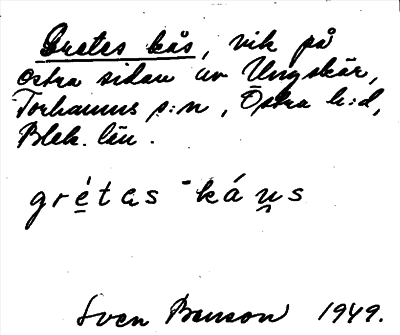 Gretes kås, vik på
östra sidan av Ungskär,
Torhamns s:n, Östra h:d,
Blek. län.
gré̱tas -káṉs
Sven Benson 1949.